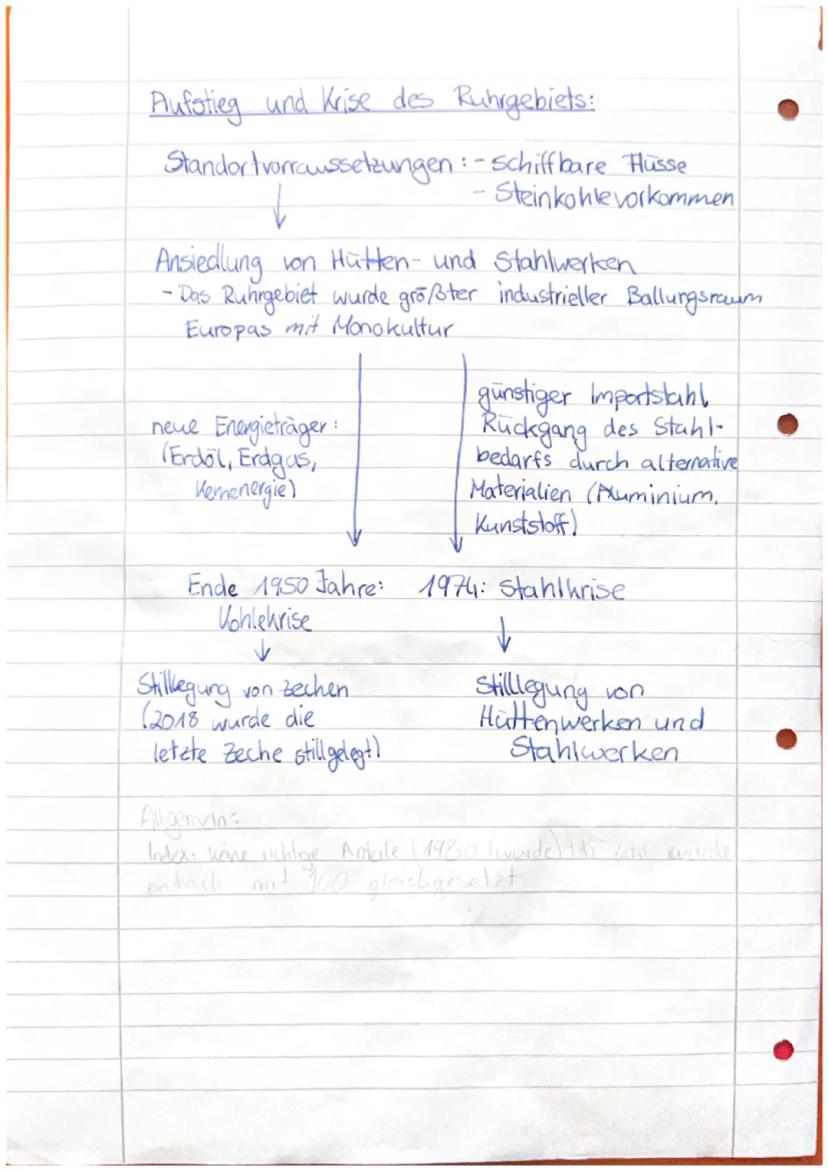 Aufstieg und Krise des Ruhrgebiets:
Standortvorraussetzungen: - schiffbare Flüsse
- Steinkohlevorkommen
Ansiedlung von Hütten- und Stahlwerken
- Das Ruhrgebiet wurde größter industrieller Ballungsraum
Europas mit Monokultur
neue Energieträger:
(Erdöl, Erdgas,
Kernenergie)
günstiger Importstahl,
Rückgang des Stahl-
bedarfs durch alternative
Materialien (Aluminium,
Kunststoff)
Ende 1950 Jahre:
Kohlekrise
Stilllegung von Zechen
(2018 wurde die
letzte Zeche stillgelegt)
1974: Stahlkrise
Stilllegung von
Hüttenwerken und
Stahlwerken
Allgemein:
Index: keine Anteile (1980 wurde) die Zahl wurde
einfach mit 100 gleichgesetzt